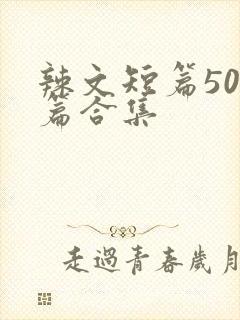 辣文短篇50
篇合集
走過青春歲月